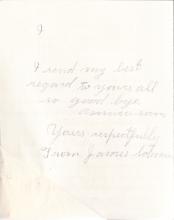 I send my best
regard to yours all
so good bye
answer soon
Yours respectfully
From James